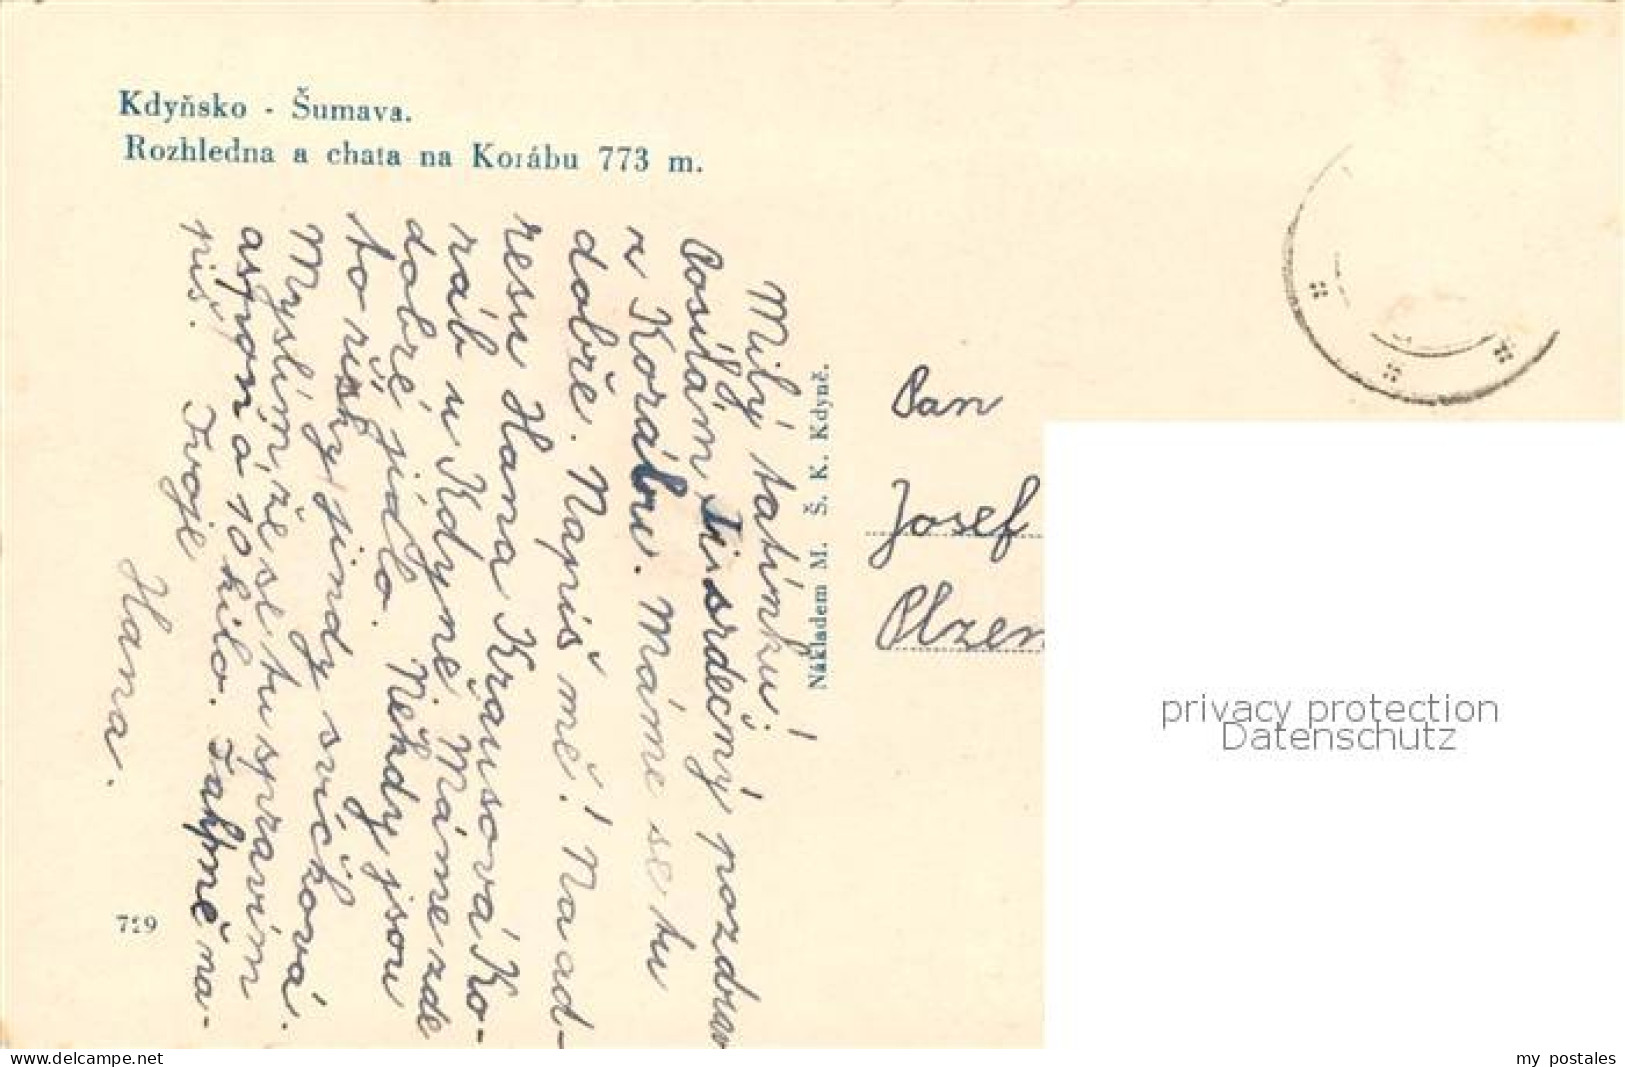 Kdyňsko - Šumava.
Rozhledna a chata na Korábu 773 m.
Milý tatínku!
Posílám Ti srdečný pozdrav
z Korábu. Máme se tu
dobře. Napiš mě! Na ad-
resu Hana Krausová Ko-
ráb u Kdyně. Máme zde
dobré jídlo. Někdy jsou
to řízky jindy svíčková.
Myslím že se tu spravím
aspoň o 10 kilo. Tak mě na-
piš. Tvoje
Hana.
729
Nákladem M. Š. K. Kdyně.
Pan
Josef
Plzeň
privacy protection
Datenschutz
www.delcampe.net
my_postales